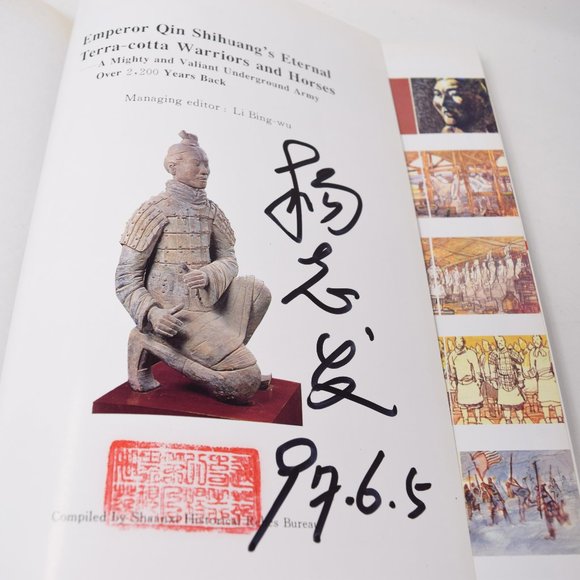 Emperor Qin Shihuang's Eternal
Terra-cotta Warriors and Horses
—A Mighty and Valiant Underground Army
Over 2,200 Years Back
Managing editor: Li Bing-wu
杨志发
97.6.5
Compiled by Shaanxi Historical Relics Bureau